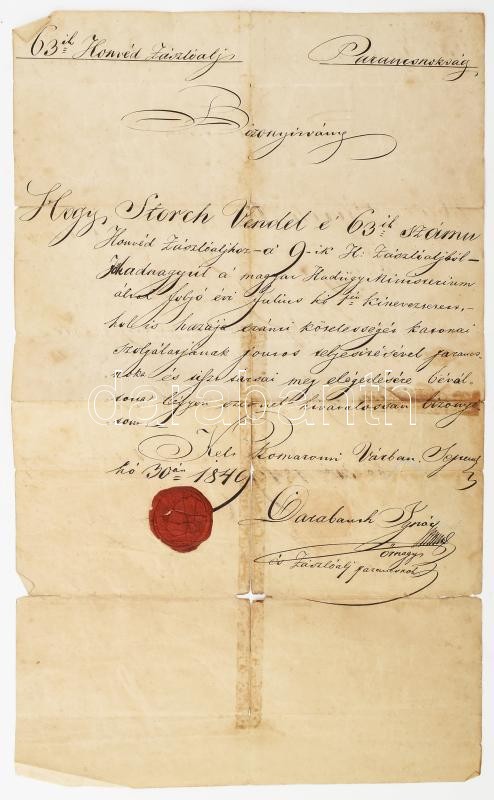 63ik Honvéd Zászlóalj Parancsnokság
Bizonyitvány
Hogy Storch Vendel é 63ik számu
Honvéd Zászlóaljhoz a 9-ik H: Zászlóaljtól
hadnagyúl a magyar Hadügy Ministerium
által folyó évi Julius hó
hol is hazája iránti kötelességét katonai
szolgálatjának pontos teljesitésével parancs-
nokai és tiszt társai meg elégedésére bévál-
totta légyen ezennel bizony-
tom
Kelt Komáromi Várban, Septemb
hó 30án 1849
Darabanth Ignác
őrnagy
és Zászlóalj parancsnok
darabanth